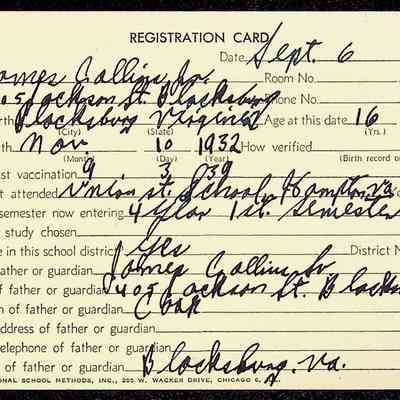 REGISTRATION CARD
Date Sept. 6
James Collins Jr. Room No.
405 Jackson St. Blacksburg Phone No.
Blacksburg Virginia Age at this date 16
(City) (State) (Yrs.)
th Nov. 10 1932 How verified
(Month) (Day) (Year) (Birth record or
st vaccination 9 3 39
st attended Union St. School, Hampton, Va
semester now entering 4 year 1st. Semester
study chosen
e in this school district Yes District N
ather or guardian James Collins Sr
of father or guardian 405 Jackson St. Blacks
n of father or guardian Cook
address of father or guardian
elephone of father or guardian
of father or guardian Blacksburg, Va.
ONAL SCHOOL METHODS, INC., W. WACKER DRIVE, CHICAGO 6,